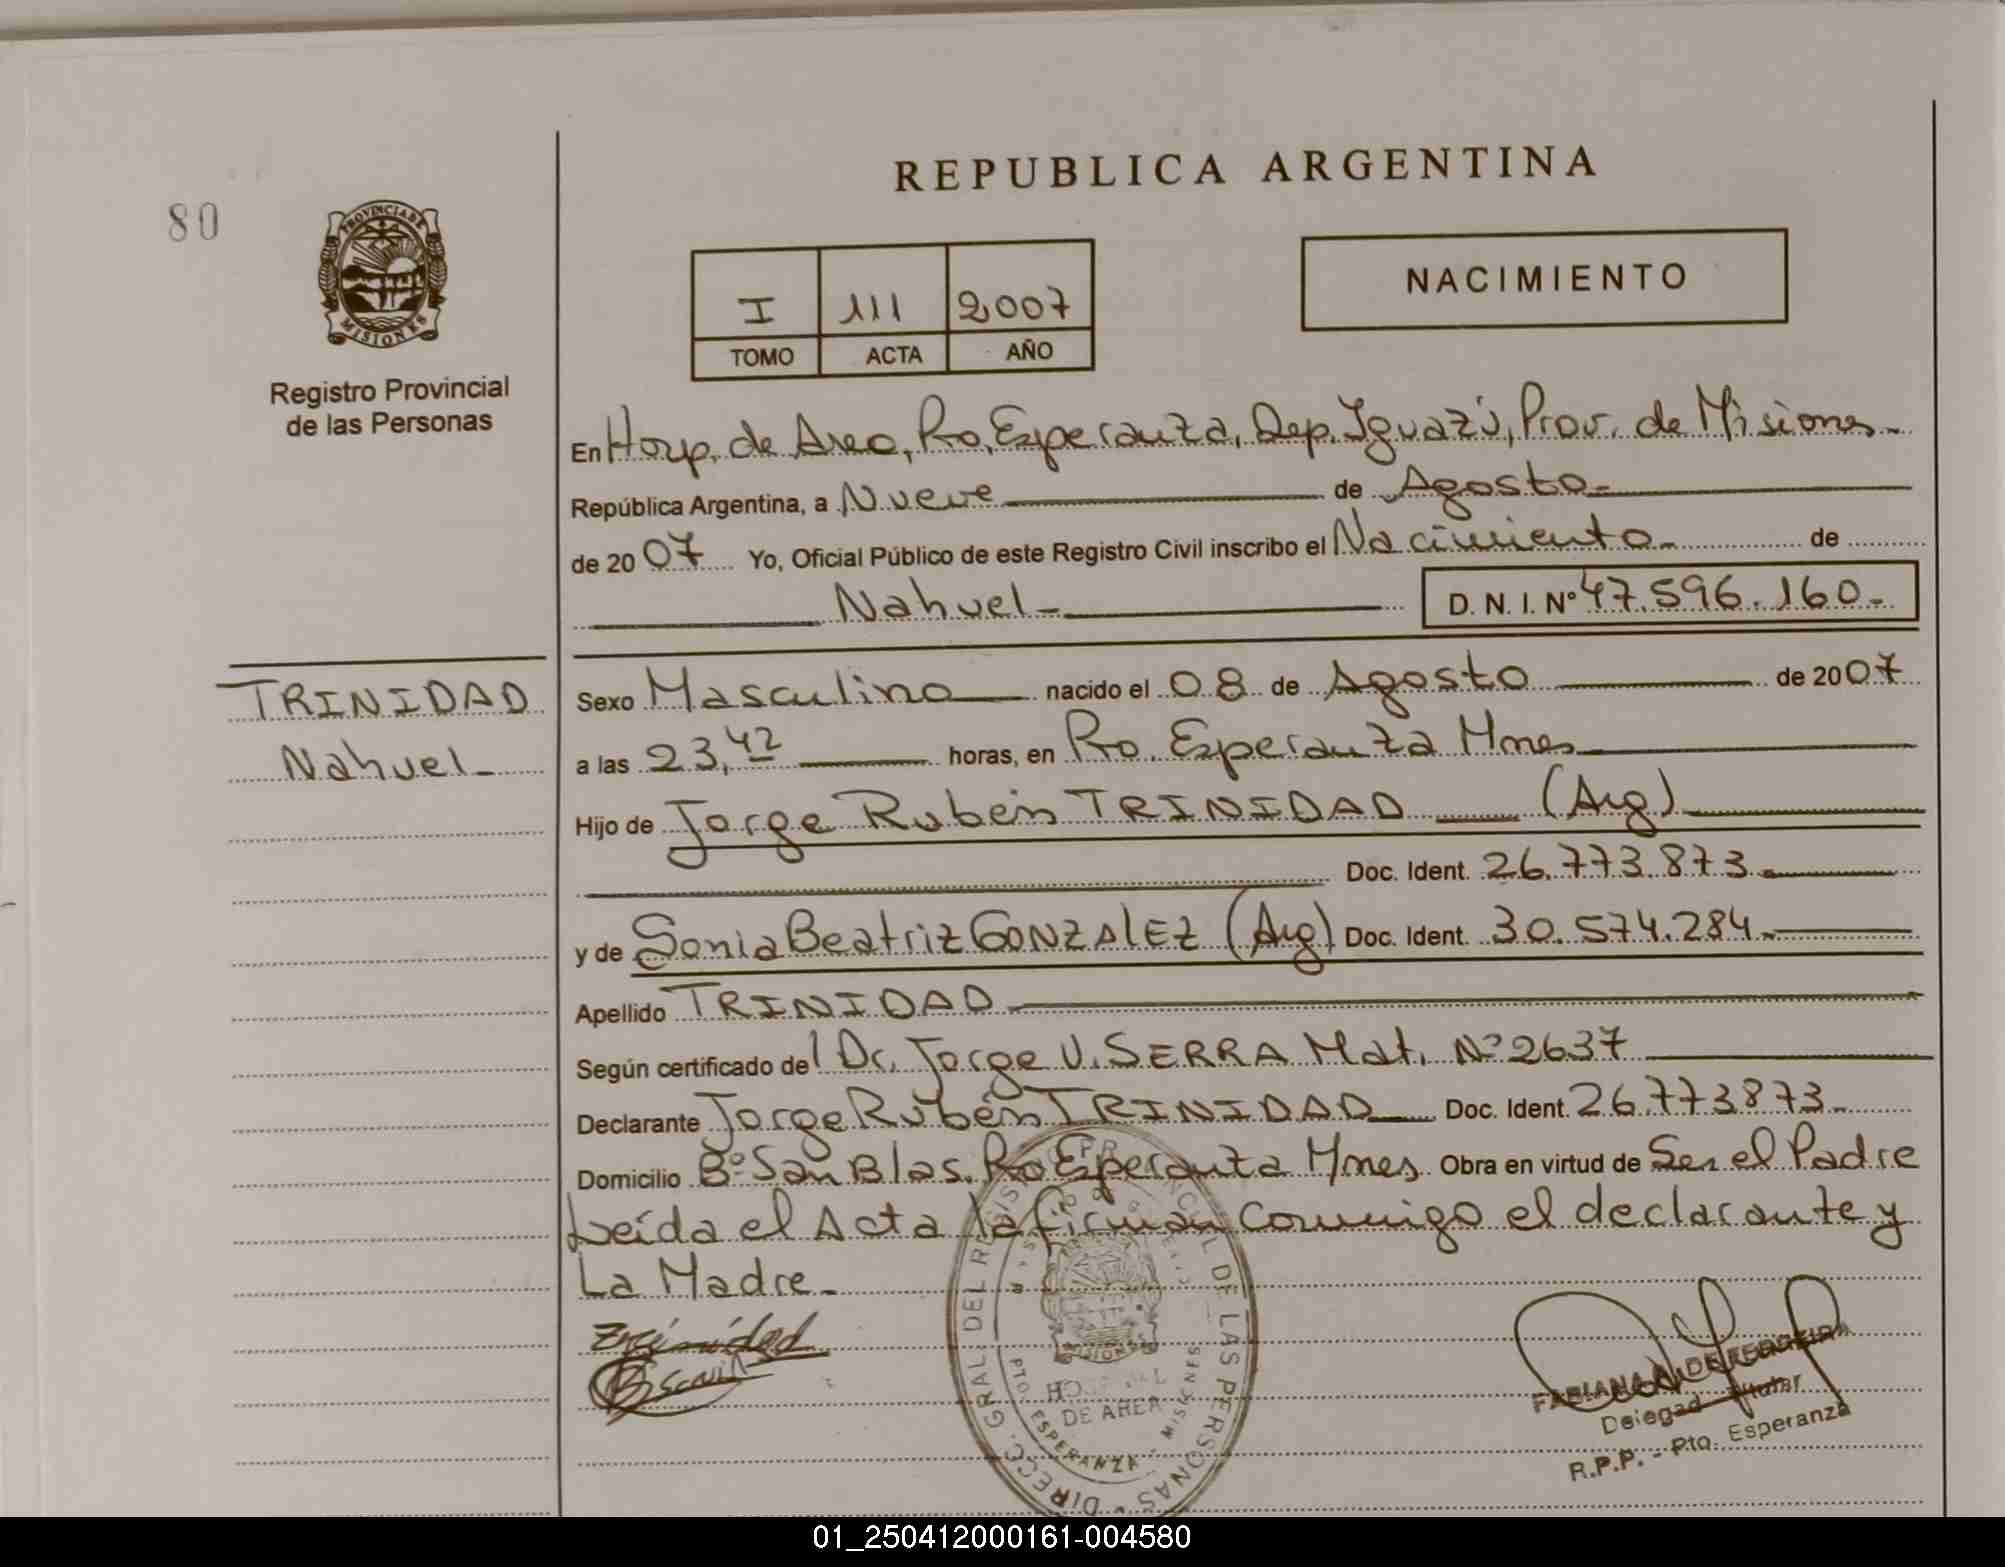 REPUBLICA ARGENTINA
80
PROVINCIA DE
MISIONES
Registro Provincial
de las Personas
I 111 2007
TOMO ACTA AÑO
NACIMIENTO
En Hosp. de Area, Pto. Esperanza, Dep. Iguazú, Prov. de Misiones.
República Argentina, a Nueve de Agosto.
de 2007 Yo, Oficial Público de este Registro Civil inscribo el Nacimiento de
Nahuel D. N. I. Nº 47.596.160.
TRINIDAD
Nahuel
Sexo Masculino nacido el 08 de Agosto de 2007
a las 23,42 horas, en Pto. Esperanza Mnes
Hijo de Jorge Rubén TRINIDAD (Arg)
Doc. Ident. 26.773.873.
y de Sonia Beatriz GONZALEZ (Arg) Doc. Ident. 30.574.284.
Apellido TRINIDAD
Según certificado del Dr. Jorge V. SERRA Mat. Nº 2637
Declarante Jorge Rubén TRINIDAD Doc. Ident. 26.773873.
Domicilio Bº San Blas. Pto Esperanza Mnes. Obra en virtud de Ser el Padre
Leída el Acta la firman conmigo el declarante y
La Madre.
Trinidad
DIRECC. GRAL. DEL REGISTRO PROVINCIAL DE LAS PERSONAS
MISIONES
HOSPITAL
DE AREA
PTO. ESPERANZA - MISIONES
FABIANA A. DE FERREIRA
Delegada Titular
R.P.P. - Pto. Esperanza
01_250412000161-004580